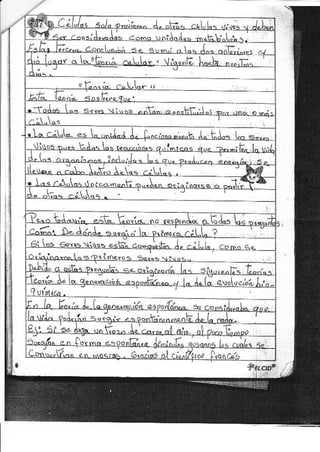 Células solo provienen de otras células vivas y deben
ser consideradas como unidades metabólicas.
Esta tercera conclusión se sumó a las dos anteriores y
dió lugar a la "teoría celular". Vigente hasta nuestros
días.
"Teoría celular"
Esta teoría sostiene que:
• Todos los seres vivos están constituidos por una o más
células
• La célula es la unidad de funcionamiento de todos los seres
vivos pues todas las reacciones químicas que permiten la vida
de los organismos, incluidas las que producen energía, se
llevan a cabo dentro de las células.
• Las células únicamente pueden originarse a partir
de otras células.
Pero todavía, esta teoría no respondía a todas las preguntas
como: De dónde surgió la primera célula?
Si los seres vivos están compuestos de célula, como se
originaron los primeros seres vivos.
Debido a estas preguntas se originaron las siguientes teorías
teoría de la generación espontánea y la de la evolución bio-
química.
En la teoría de la generación espontánea se consideraba que
la vida podía surgir espontáneamente de la nada.
Ej: Si se deja un trozo de carne al aire, al poco tiempo
surgían en forma espontánea diminutos gusanos los cuales se
convertían en moscas. Gracias al científico francés